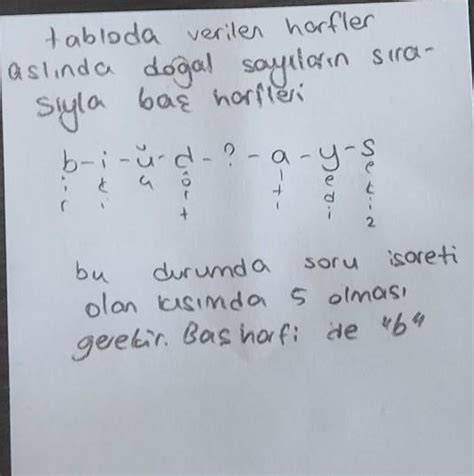 tabloda verilen harfler
aslında doğal sayıların sıra-
sıyla baş harfleri
b-i-ü-d-?-a-y-s
bir iki üç dört altı yedi sekiz
bu durumda soru isareti
olan kısımda 5 olması
gerekir. Baş harfi de "b"